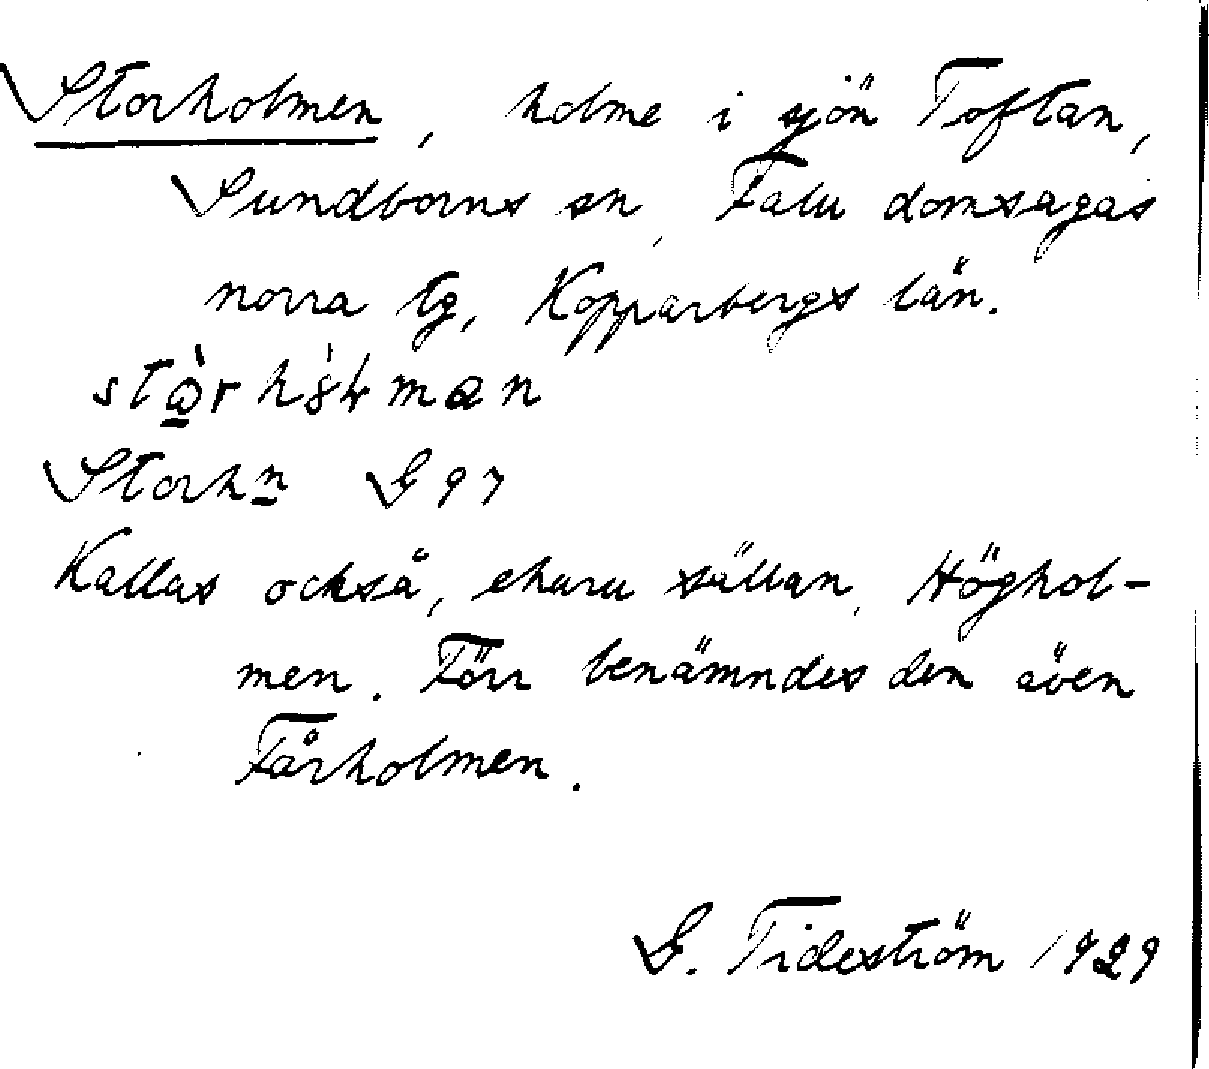 Storholmen, holme i sjön Toftan,
Sundborns sn, Falu domsagas
norra tg, Kopparbergs län.
Storhn G 97
Kallas också, ehuru sällan, Höghol-
men. Förr benämndes den även
Fårholmen.
G. Tideström 1929